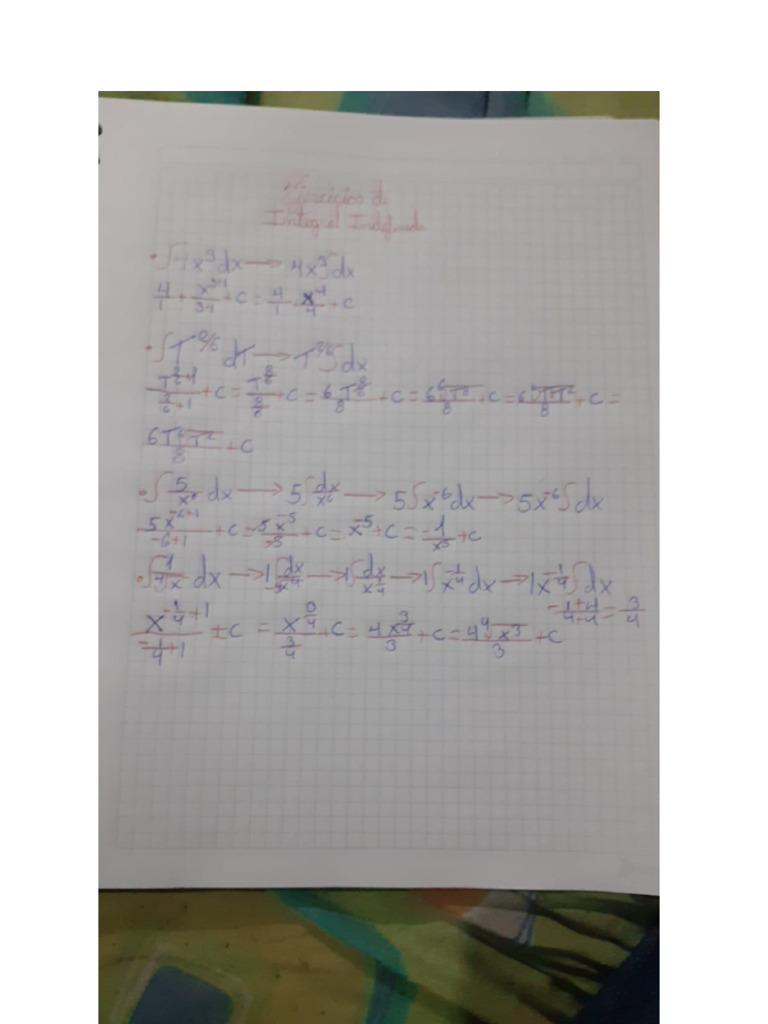 Ejercicios de
Integral Indefinida
• ∫4x³dx → 4x³∫dx
4/1 + x³⁺¹/3+1 + C = 4/1 x⁴/4 + C
dT → ∫dx
+ C = + C = 6T^(8/6)/8 + C = + C = + C =
6T ⁶√T²/8 + C
• ∫5/x⁶ dx → 5∫dx/x⁶ → 5∫x⁻⁶dx → 5x⁻⁶∫dx
5x⁻⁶⁺¹/-6+1 + C = 5x⁻⁵/-5 + C = x⁻⁵ + C = -1/x⁵ + C
• ∫1/⁴√x dx → 1∫dx/ → 1∫dx/x^(1/4) → 1∫x^(-1/4) dx → 1x^(-1/4)∫dx
-1+4/4+4 = 3/4
x^(-1/4+1)/-1/4+1 + C = /3/4 + C = 4x^(3/4)/3 + C = 4 ⁴√x³/3 + C